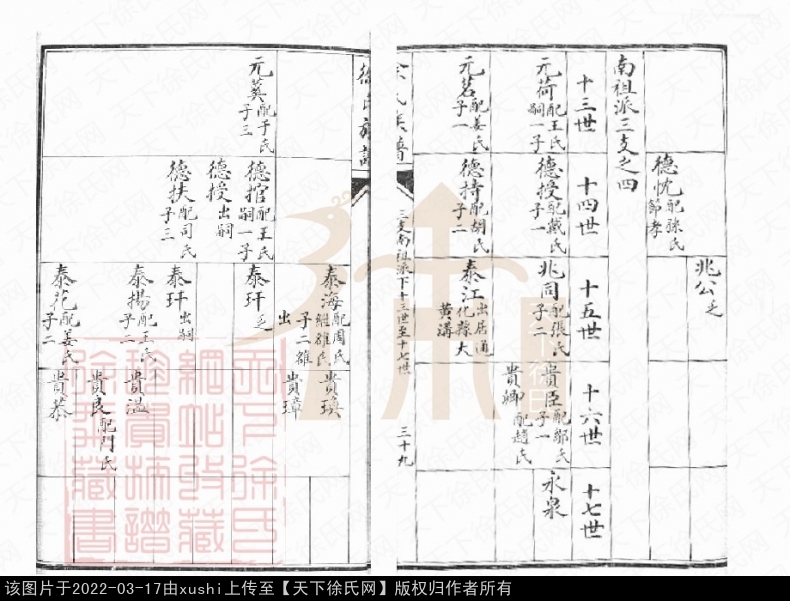 兆公乏
德忱配孫氏
節孝
南祖派三支之四
十三世
十四世
十五世
十六世
十七世
元荷配王氏
嗣一子
德授配戴氏
子一
兆同配張氏
子二
貴臣配鄒氏
子一
永泉
貴卿配趙氏
元茗配姜氏
子一
德持配胡氏
子二
泰江出居通
化縣大
黃溝
徐氏族譜
三支南祖派下十三世至十七世
三十九
徐氏族譜
泰海配周氏
繼雒氏
子二雒
出
貴璸
貴璋
元蓂配于氏
子三
德捾配王氏
嗣一子
泰玕乏
德授出嗣
德扶配司氏
子三
泰玕出嗣
泰揚配王氏
子二
貴溫
貴良配門氏
泰花配姜氏
子二
貴恭
天下徐氏
天下徐氏網
该图片于2022-03-17由xushi上传至【天下徐氏网】版权归作者所有